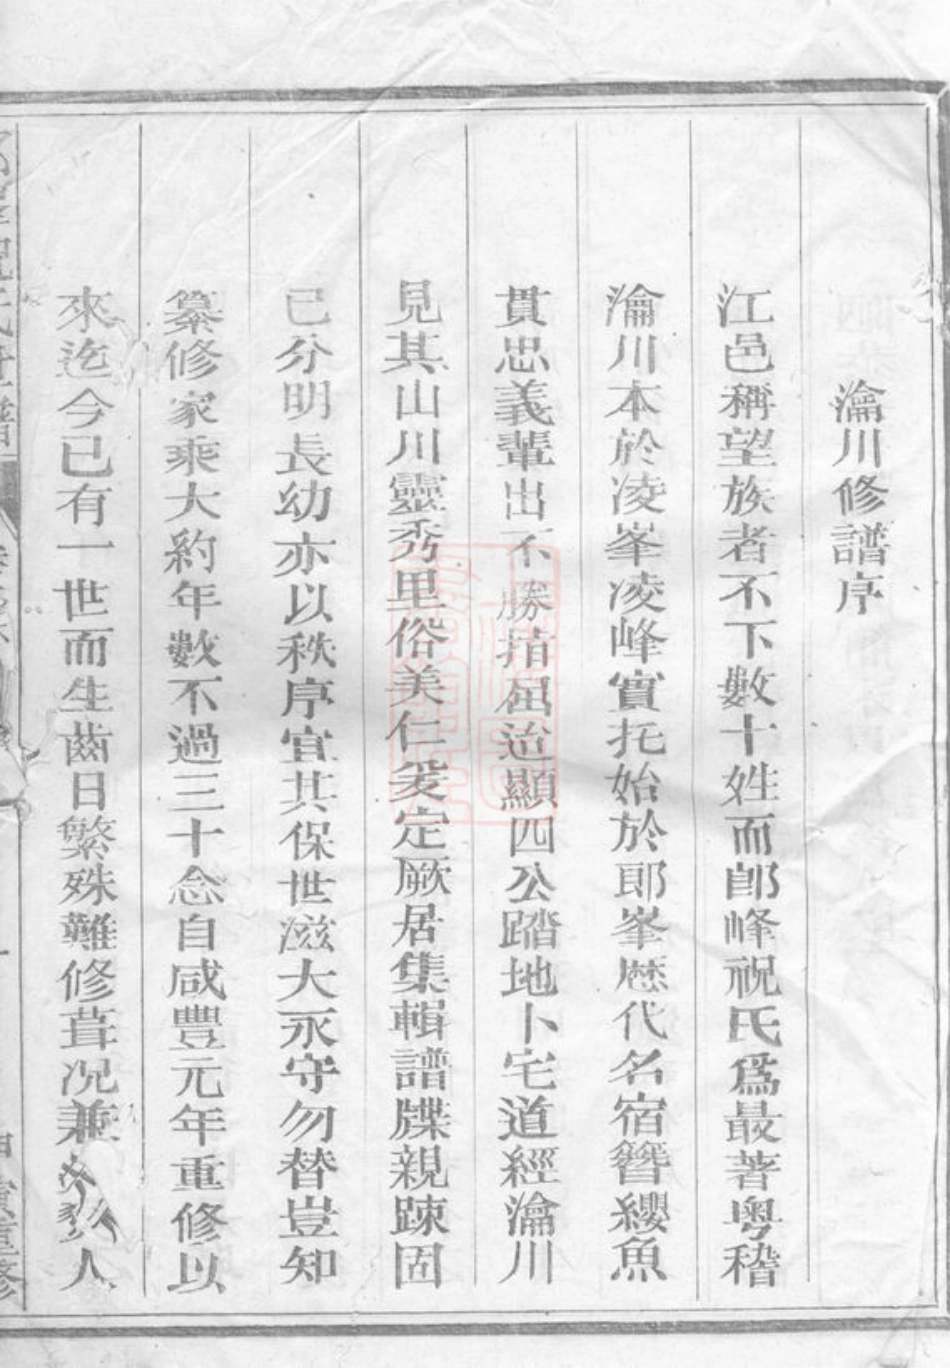 瀹川修譜序
江邑稱望族者不下數十姓而郎峰祝氏爲最著粤稽
瀹川本於凌峯凌峰實托始於郎峯歷代名宿簪纓魚
貫忠義輩出不勝指屈迨顯四公踏地卜宅道經瀹川
見其山川靈秀里俗美仁爰定厥居集輯譜牒親踈固
已分明長幼亦以秩序宜其保世滋大永守勿替豈知
纂修家乘大約年數不過三十念自咸豐元年重修以
來迄今已有一世而生齒日繁殊難修葺况兼人
祝氏世譜
重修